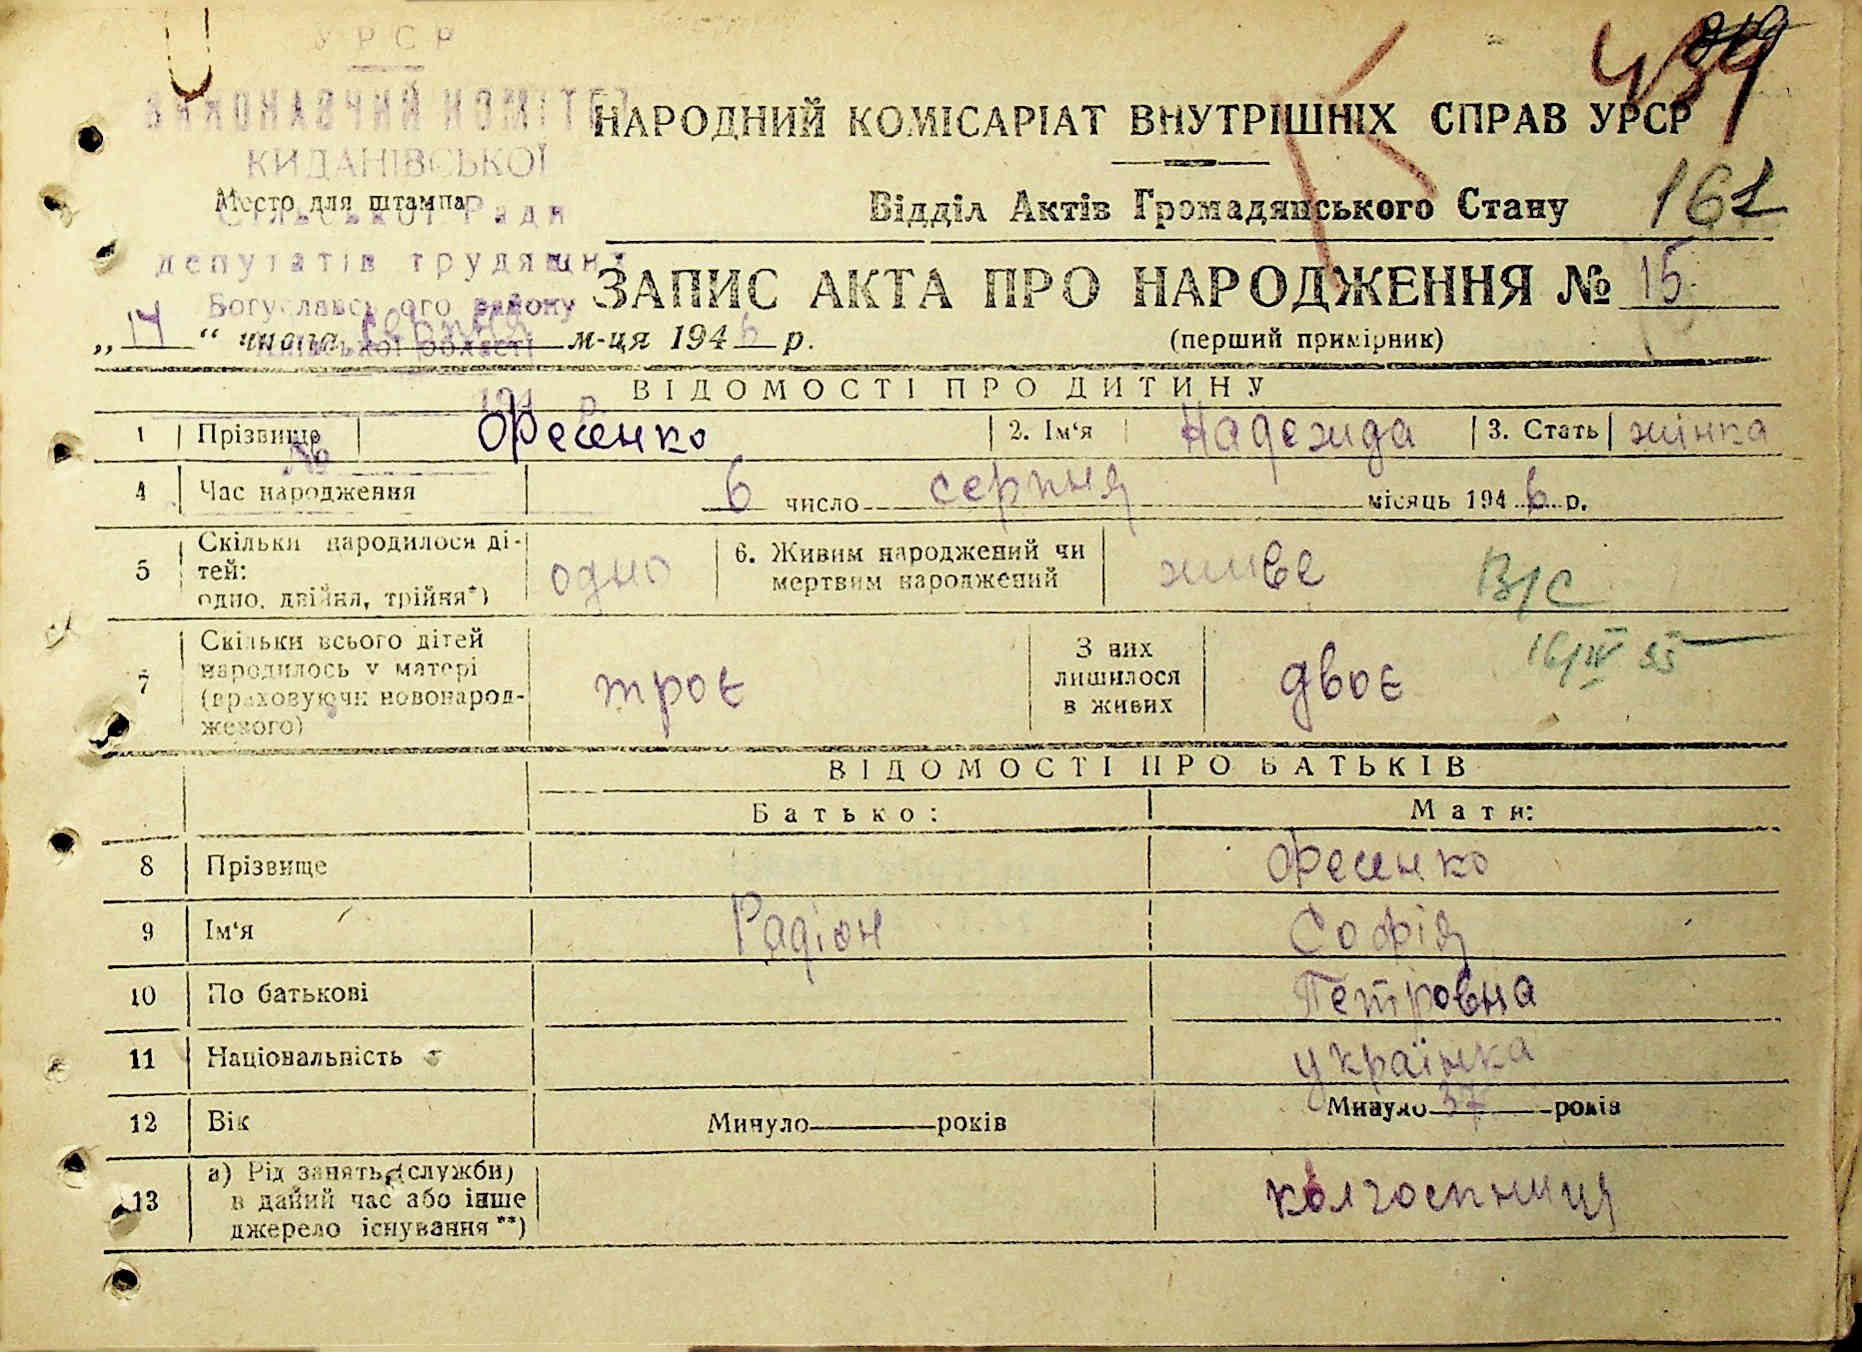 УРСР
ВИКОНАВЧИЙ КОМІТЕТ
КИДАНІВСЬКОЇ
Сільської Ради
депутатів трудящих
Богуславського району
Київської області
194 р.
№
Место для штампа
439
НАРОДНИЙ КОМІСАРІАТ ВНУТРІШНІХ СПРАВ УРСР
Відділ Актів Громадянського Стану
161
ЗАПИС АКТА ПРО НАРОДЖЕННЯ № 15
(перший примірник)
„ 14 “ числа серпня м-ця 1946 р.
ВІДОМОСТІ ПРО ДИТИНУ
1 Прізвище Фесенко 2. Ім‘я Надежда 3. Стать жінка
4 Час народження 6 число серпня місяць 1946 р.
5 Скільки народилося ді-
тей:
одно, двійня, трійня*)
одно
6. Живим народжений чи
мертвим народжений
живе
В/С
16/IV 55
7 Скільки всього дітей
народилось у матері
(враховуючи новонарод-
женого)
троє
З них
лишилося
в живих
двоє
ВІДОМОСТІ ПРО БАТЬКІВ
Батько: Мати:
8 Прізвище Фесенко
9 Ім‘я Радіон Софія
10 По батькові Петровна
11 Національність українка
12 Вік Минуло років Минуло 37 років
13 а) Рід занять (служби)
в даний час або інше
джерело існування**)
колгоспниця